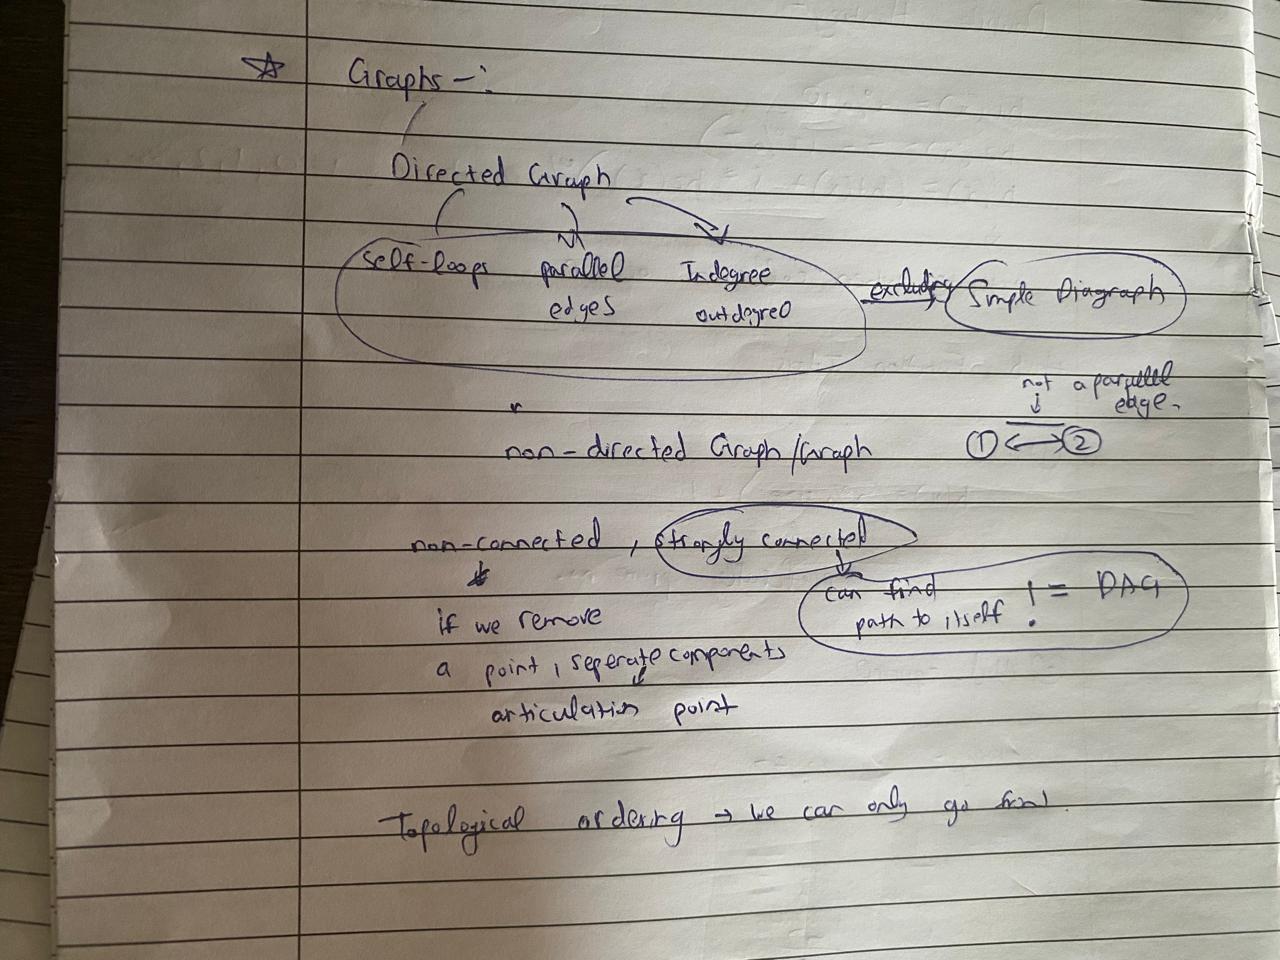 Graphs -:
Directed Graph
self-loops parallel edges Indegree outdegree excluding Simple Diagraph
not a parallel edge.
non-directed Graph/Graph 1 2
non-connected, strongly connected
can find path to itself != DAG
if we remove
a point, seperate components
articulation point
Topological ordering → we can only go